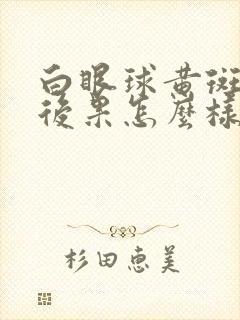 白眼球黄斑
后果怎麼樣
杉田惠美